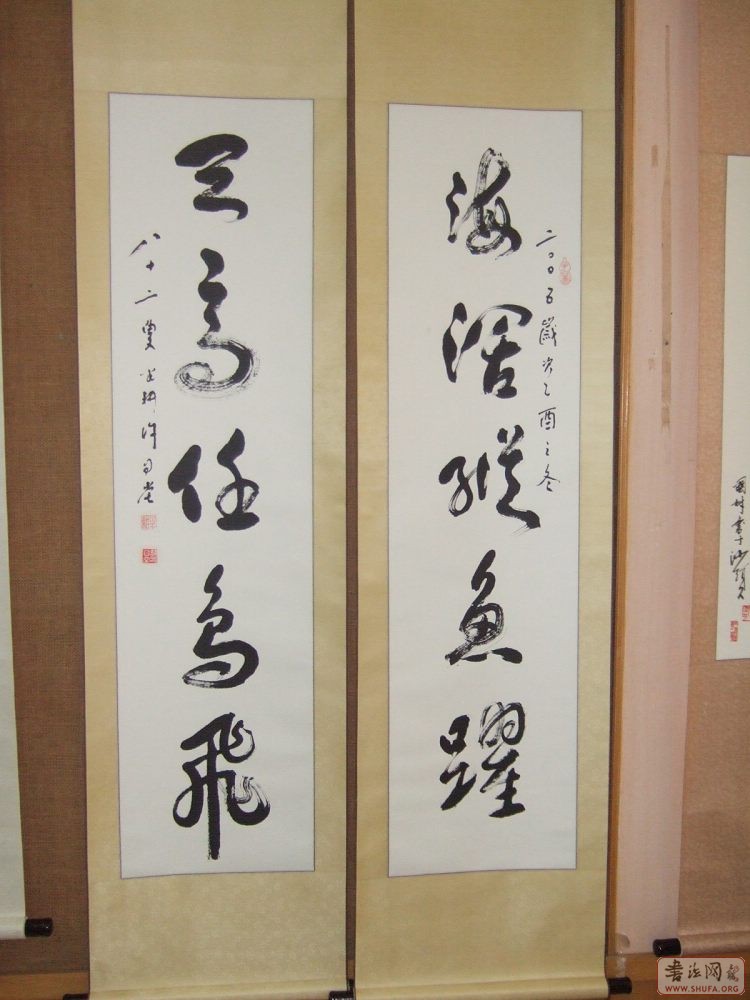 海阔縱魚躍
二〇〇五歲次乙酉之冬
天高任鳥飛
八十二叟
書于
书法网
WWW.SHUFA.ORG